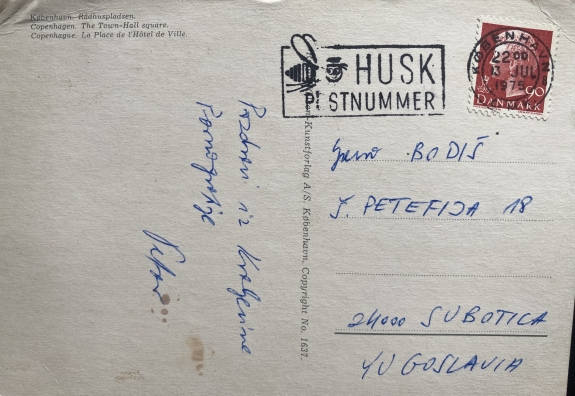 København. Rådhuspladsen.
Copenhagen. The Town-Hall square.
Copenhague. La Place de l'Hôtel de Ville.
HUSK
P STNUMMER
KØBENHAVN
22 00
3 JUL
1975
90
DANMARK
Pozdravi iz Kraljevine
Pornografije
Petar
-Kunstforlag A/S. København. Copyright No. 1637.
BODIŠ
Š. PETEFIJA 18
24000 SUBOTICA
YUGOSLAVIA